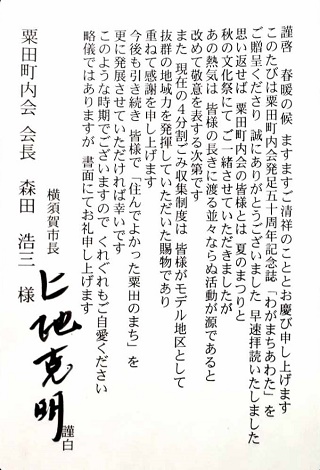 謹啓　春暖の候　ますますご清祥のこととお慶び申し上げます
このたびは粟田町内会発足五十周年記念誌「わがまちあわた」を
ご贈呈くださり　誠にありがとうございました　早速拝読いたしました
思い返せば　粟田町内会の皆様とは　夏のまつりと
秋の文化祭にて　ご一緒させていただきましたが
あの熱気は　皆様の長きに渡る並々ならぬ活動が源であると
改めて敬意を表する次第です
また　現在の４分割ごみ収集制度は　皆様がモデル地区として
抜群の地域力を発揮していただいた賜物であり
重ねて感謝を申し上げます
今後も引き続き　皆様で「住んでよかった粟田のまち」を
更に発展させていただければ幸いです
このような時期でございますので　くれぐれもご自愛ください
略儀ではありますが　書面にてお礼申し上げます
横須賀市長　上地克明　謹白
粟田町内会　会長　森田　浩三　様